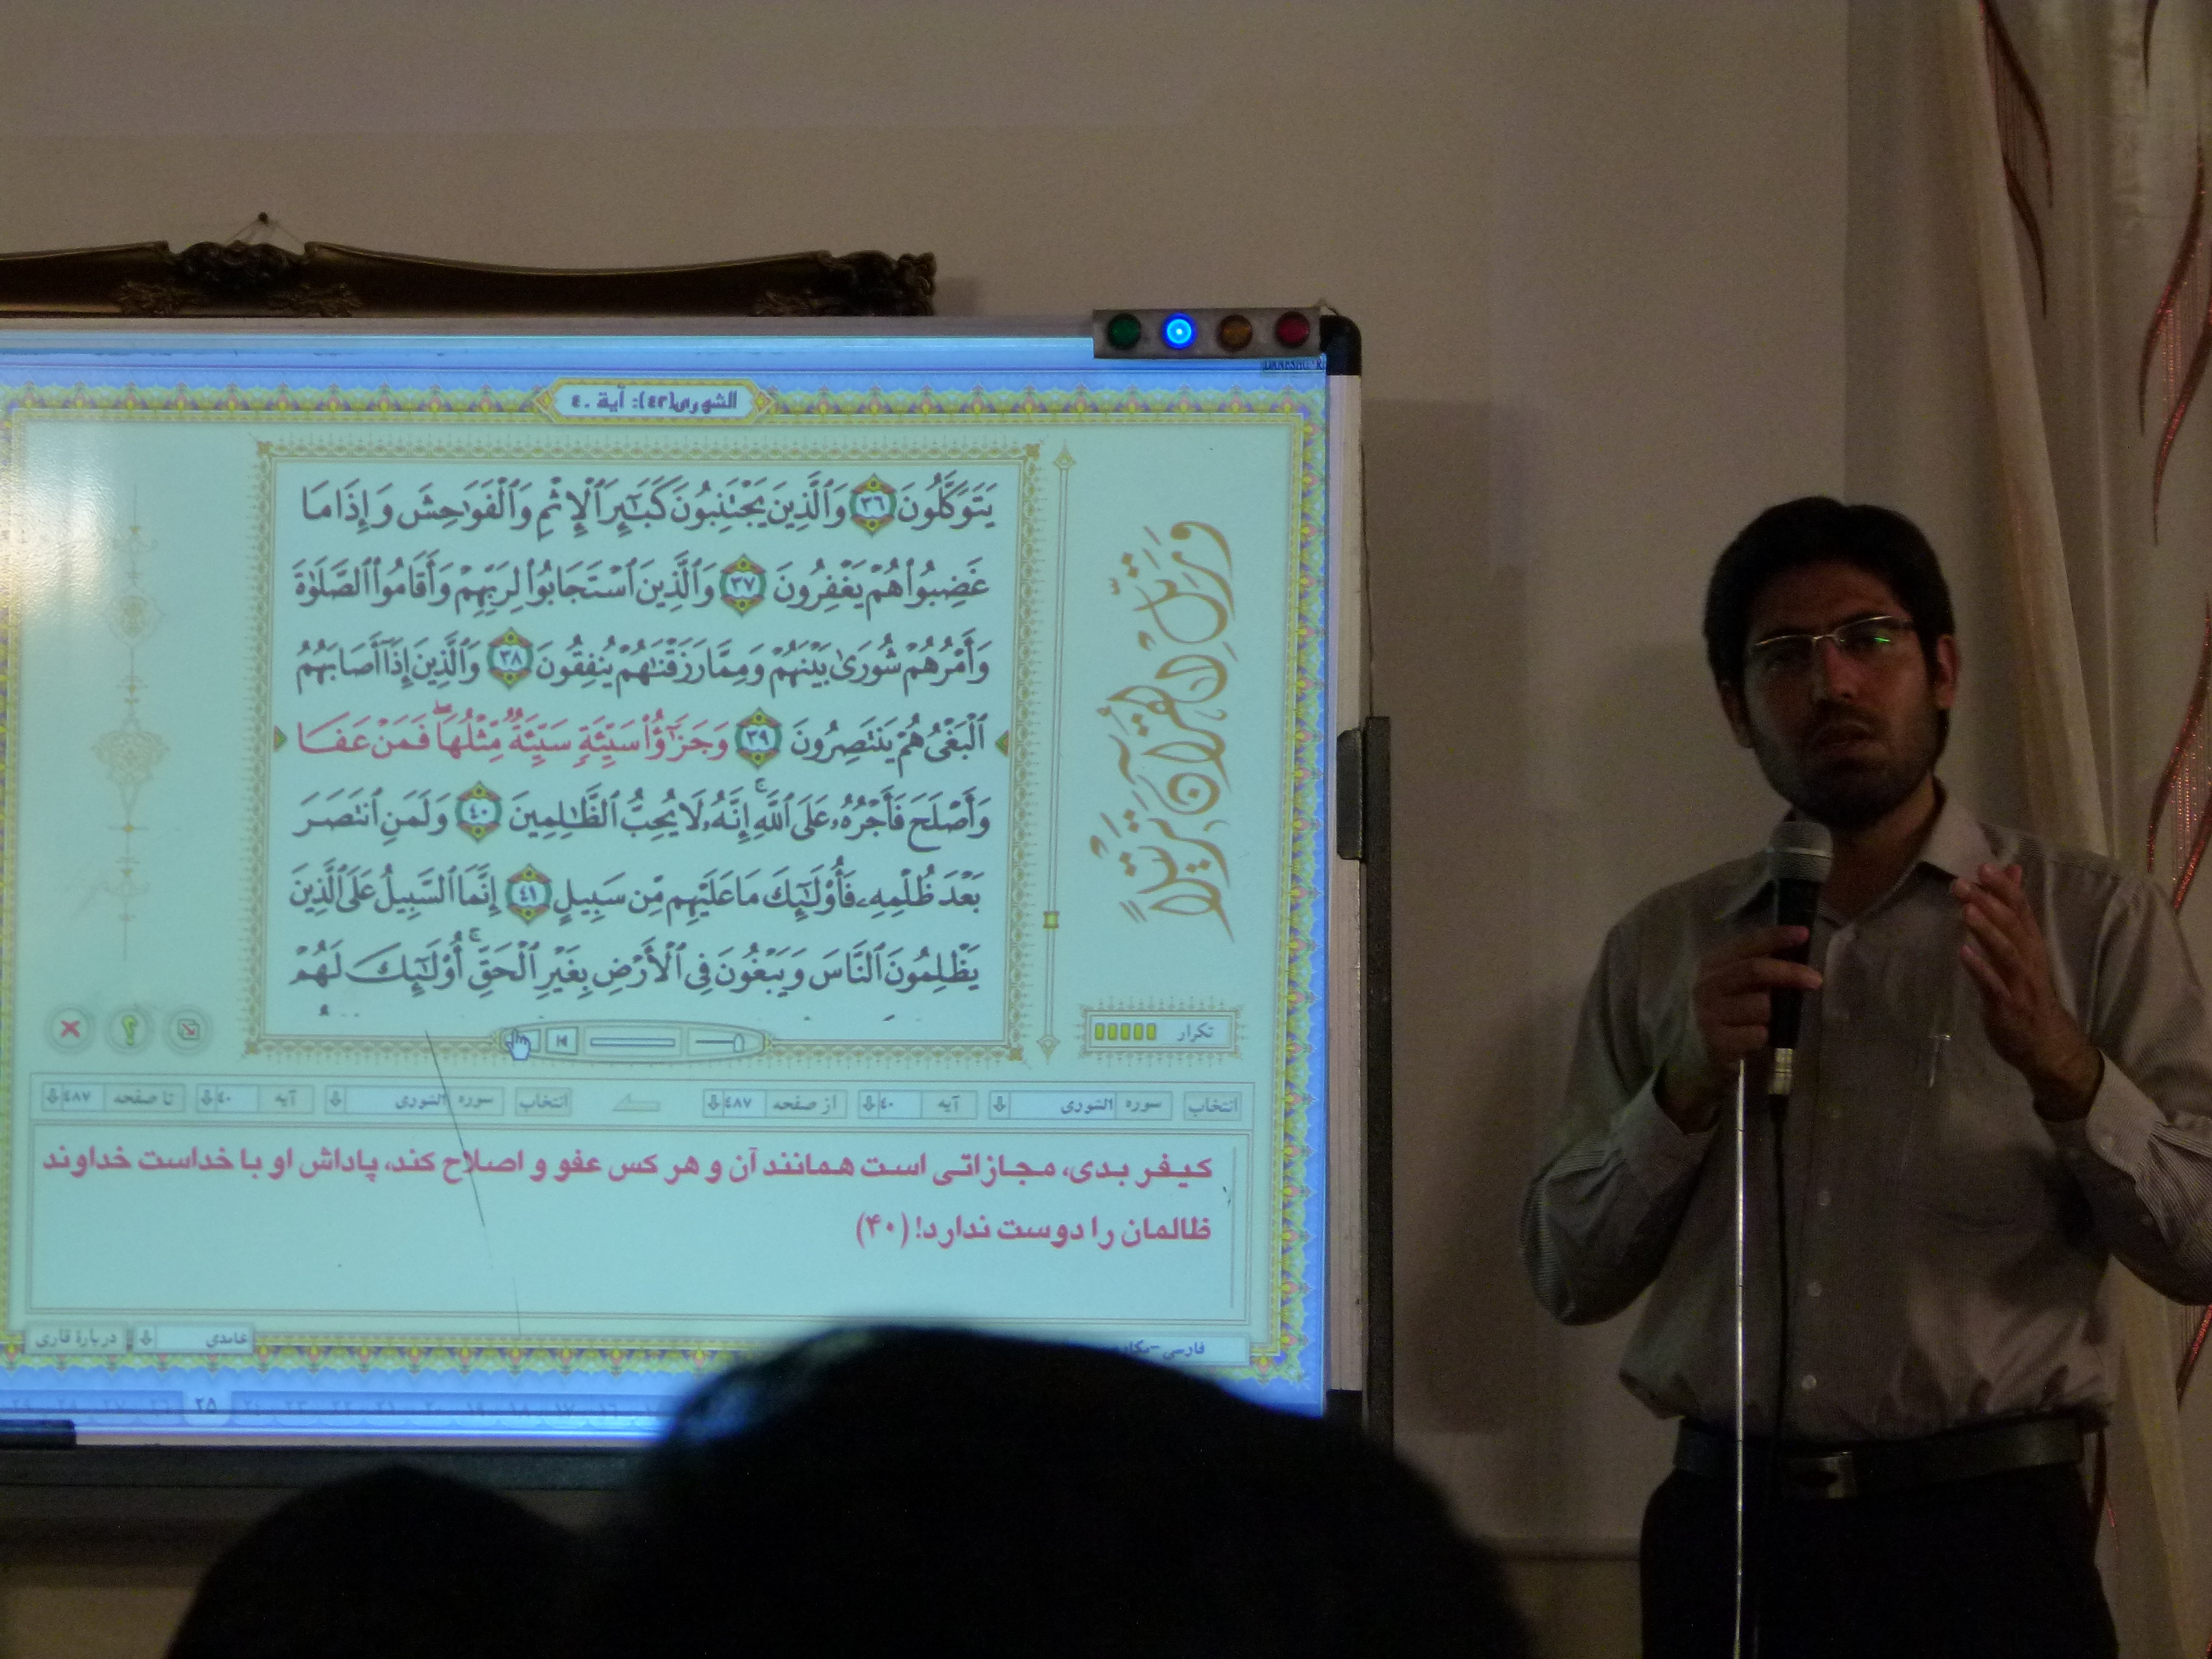 DANESHGAR
الشوری(٤٢): آیة ٤٠
يَتَوَكَّلُونَ ٣٦ وَٱلَّذِينَ يَجْتَنِبُونَ كَبَـٰٓئِرَ ٱلْإِثْمِ وَٱلْفَوَٰحِشَ وَإِذَا مَا
غَضِبُوا۟ هُمْ يَغْفِرُونَ ٣٧ وَٱلَّذِينَ ٱسْتَجَابُوا۟ لِرَبِّهِمْ وَأَقَامُوا۟ ٱلصَّلَوٰةَ
وَأَمْرُهُمْ شُورَىٰ بَيْنَهُمْ وَمِمَّا رَزَقْنَـٰهُمْ يُنفِقُونَ ٣٨ وَٱلَّذِينَ إِذَآ أَصَابَهُمُ
ٱلْبَغْىُ هُمْ يَنتَصِرُونَ ٣٩ وَجَزَٰٓؤُا۟ سَيِّئَةٍ سَيِّئَةٌ مِّثْلُهَا ۖ فَمَنْ عَفَا
وَأَصْلَحَ فَأَجْرُهُۥ عَلَى ٱللَّهِ ۚ إِنَّهُۥ لَا يُحِبُّ ٱلظَّـٰلِمِينَ ٤٠ وَلَمَنِ ٱنتَصَرَ
بَعْدَ ظُلْمِهِۦ فَأُو۟لَـٰٓئِكَ مَا عَلَيْهِم مِّن سَبِيلٍ ٤١ إِنَّمَا ٱلسَّبِيلُ عَلَى ٱلَّذِينَ
يَظْلِمُونَ ٱلنَّاسَ وَيَبْغُونَ فِى ٱلْأَرْضِ بِغَيْرِ ٱلْحَقِّ ۚ أُو۟لَـٰٓئِكَ لَهُمْ
و رَتِّلِ القُرآنَ تَرتيلاً
تکرار
انتخاب سوره الشوری آیه ٤٠ از صفحه ٤٨٧ انتخاب سوره الشوری آیه ٤٠ تا صفحه ٤٨٧
کیفر بدی، مجازاتی است همانند آن و هر کس عفو و اصلاح کند، پاداش او با خداست خداوند
ظالمان را دوست ندارد! (۴۰)
فارسی-مکارم
غامدی دربارهٔ قاری
٢٥